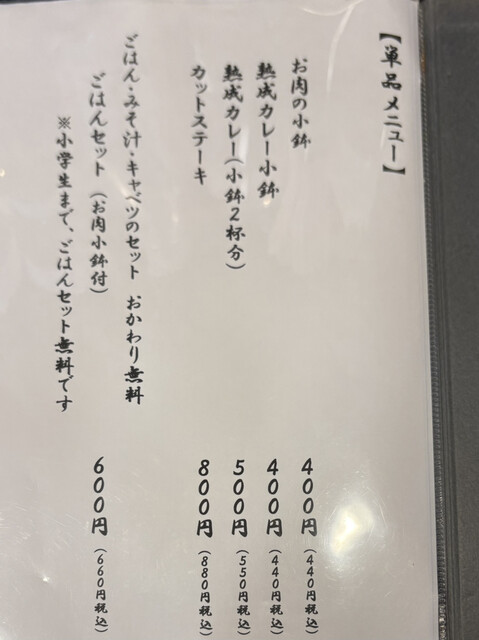 【単品メニュー】
お肉の小鉢 400円(440円税込)
熟成カレー小鉢 400円(440円税込)
熟成カレー(小鉢2杯分) 500円(550円税込)
カットステーキ 800円(880円税込)
ごはん・みそ汁・キャベツのセット おかわり無料
ごはんセット(お肉小鉢付) 600円(660円税込)
※小学生まで、ごはんセット無料です